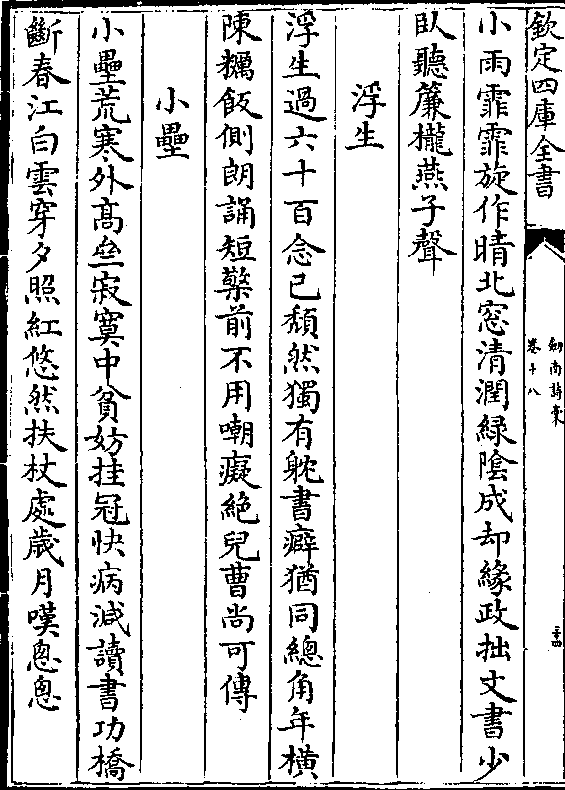 欽定四庫全書
劍南詩稾
卷十八
二十四
小雨霏霏旋作晴北窓清潤緑陰成却緣政拙文書少
臥聽簾櫳燕子聲
浮生
浮生過六十百念已頽然獨有躭書癖猶同總角年横
陳糲飯側朗誦短檠前不用嘲癡絶兒曹尚可傳
小壘
小壘荒寒外髙亝寂寞中貧妨挂冠快病減讀書功橋
斷春江白雲穿夕照紅悠然扶杖處歲月嘆悤悤